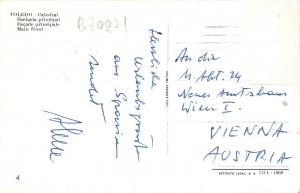 TOLEDO - Catedral
Fachada principal
Façade principale
Main front
B70021
Herzliche
Urlaubsgrüsse
aus Spanien
sendet
An die
M. Abt. 24
Neues Amtshaus
Wien I.
VIENNA
AUSTRIA
4